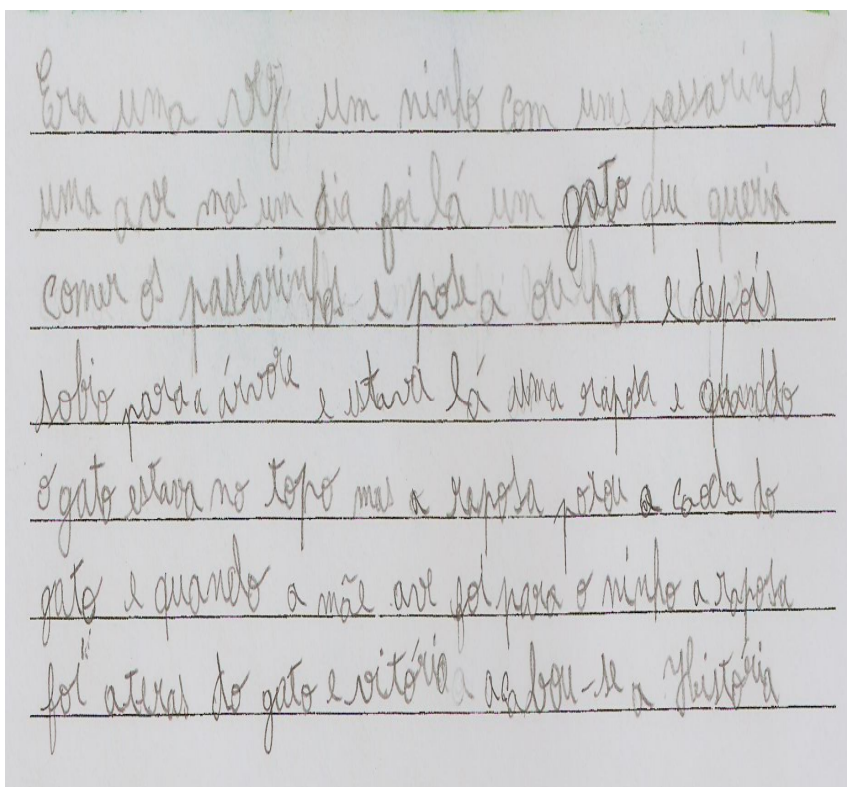 Era uma vez um ninho com ums passarinhos e
uma ave mas um dia foi lá um gato que queria
comer os passarinhos e pose a oulhar e depois
sobio para a árvore e estava lá uma raposa e quando
o gato estava no topo mas a raposa poxou a caoda do
gato e quando a mãe ave foi para o ninho a raposa
foi ateras do gato e vitória acabou-se a História